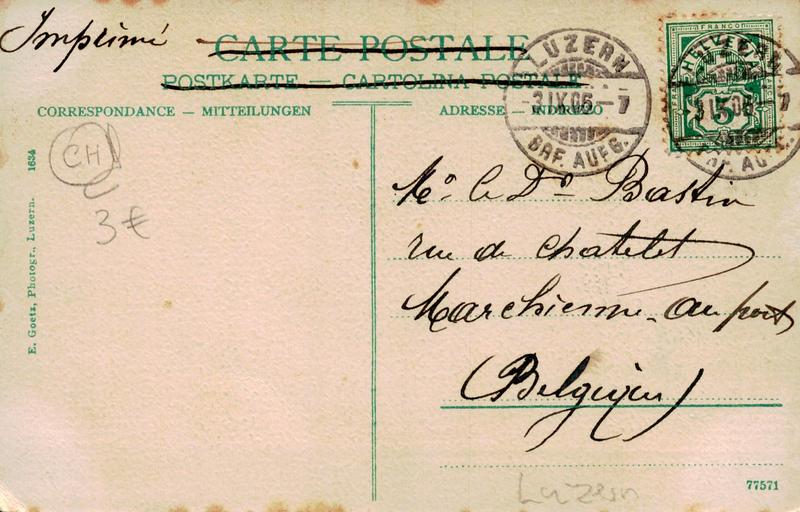 Imprimé
CARTE POSTALE
POSTKARTE — CARTOLINA POSTALE
CORRESPONDANCE — MITTEILUNGEN
ADRESSE — INDIRIZZO
LUZERN
3 IX 06 - 7
BRF. AUFG.
FRANCO
HELVETIA
5
CH
3 €
E. Goetz, Photogr., Luzern. 1634
Mr le Dr Bastin
rue de Chatelet
Marchienne-au-pont
(Belgique)
77571
Luzern